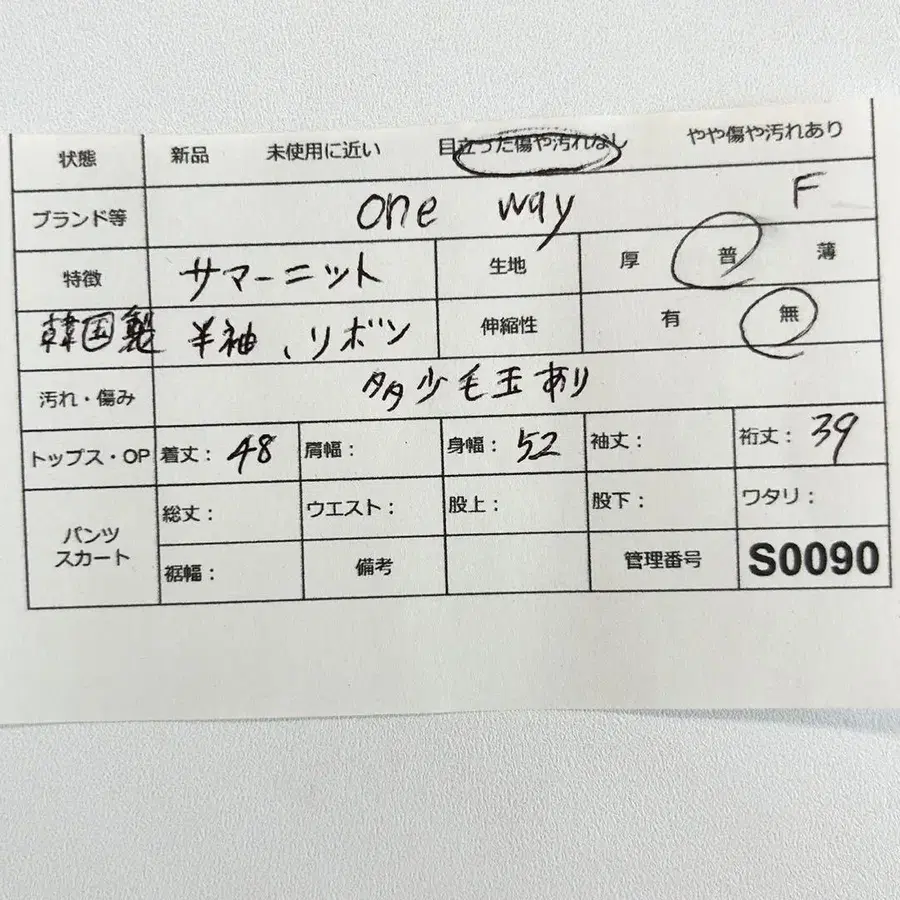 状態 新品 未使用に近い 目立った傷や汚れなし やや傷や汚れあり
ブランド等 one way F
特徴 サマーニット 生地 厚 普 薄
韓国製 半袖、リボン 伸縮性 有 無
汚れ・傷み 多少毛玉あり
トップス・OP 着丈: 48 肩幅: 身幅: 52 袖丈: 裄丈: 39
パンツ スカート 総丈: ウエスト: 股上: 股下: ワタリ:
裾幅: 備考 管理番号 S0090